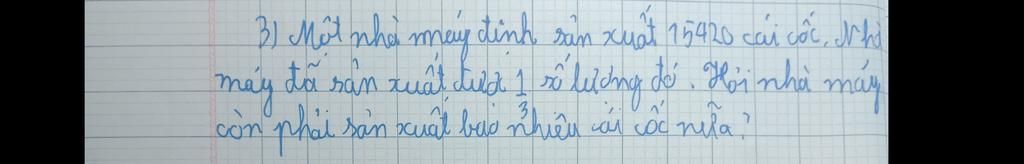 3) Một nhà máy định sản xuất 15420 cái cốc. Nhà
máy đã sản xuất được 1/3 số lượng đó. Hỏi nhà máy
còn phải sản xuất bao nhiêu cái cốc nữa?